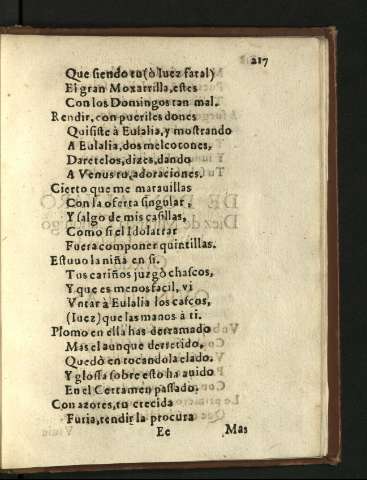 217
Que siendo tu (ò Iuez fatal)
El gran Moxarrilla, estes
Con los Domingos tan mal.
Rendir, con pueriles dones
Quisiste à Eulalia, y mostrando
A Eulalia, dos melcocones,
Daretelos, dizes, dando
A Venus tu, adoraciones.
Cierto que me marauillas
Con la oferta singular,
Y salgo de mis casillas,
Como si el Idolatrar
Fuera componer quintillas.
Estuuo la niña en si.
Tus cariños juzgò chascos,
Y que es menos facil, vi
Vntar à Eulalia los cascos,
(Iuez) que las manos à ti.
Plomo en ella has derramado
Mas el aunque derretido,
Quedò en tocandola elado.
Y glossa sobre esto ha auido
En el Certamen passado.
Con azotes, tu crecida
Furia, rendir la procura
Ee Mas